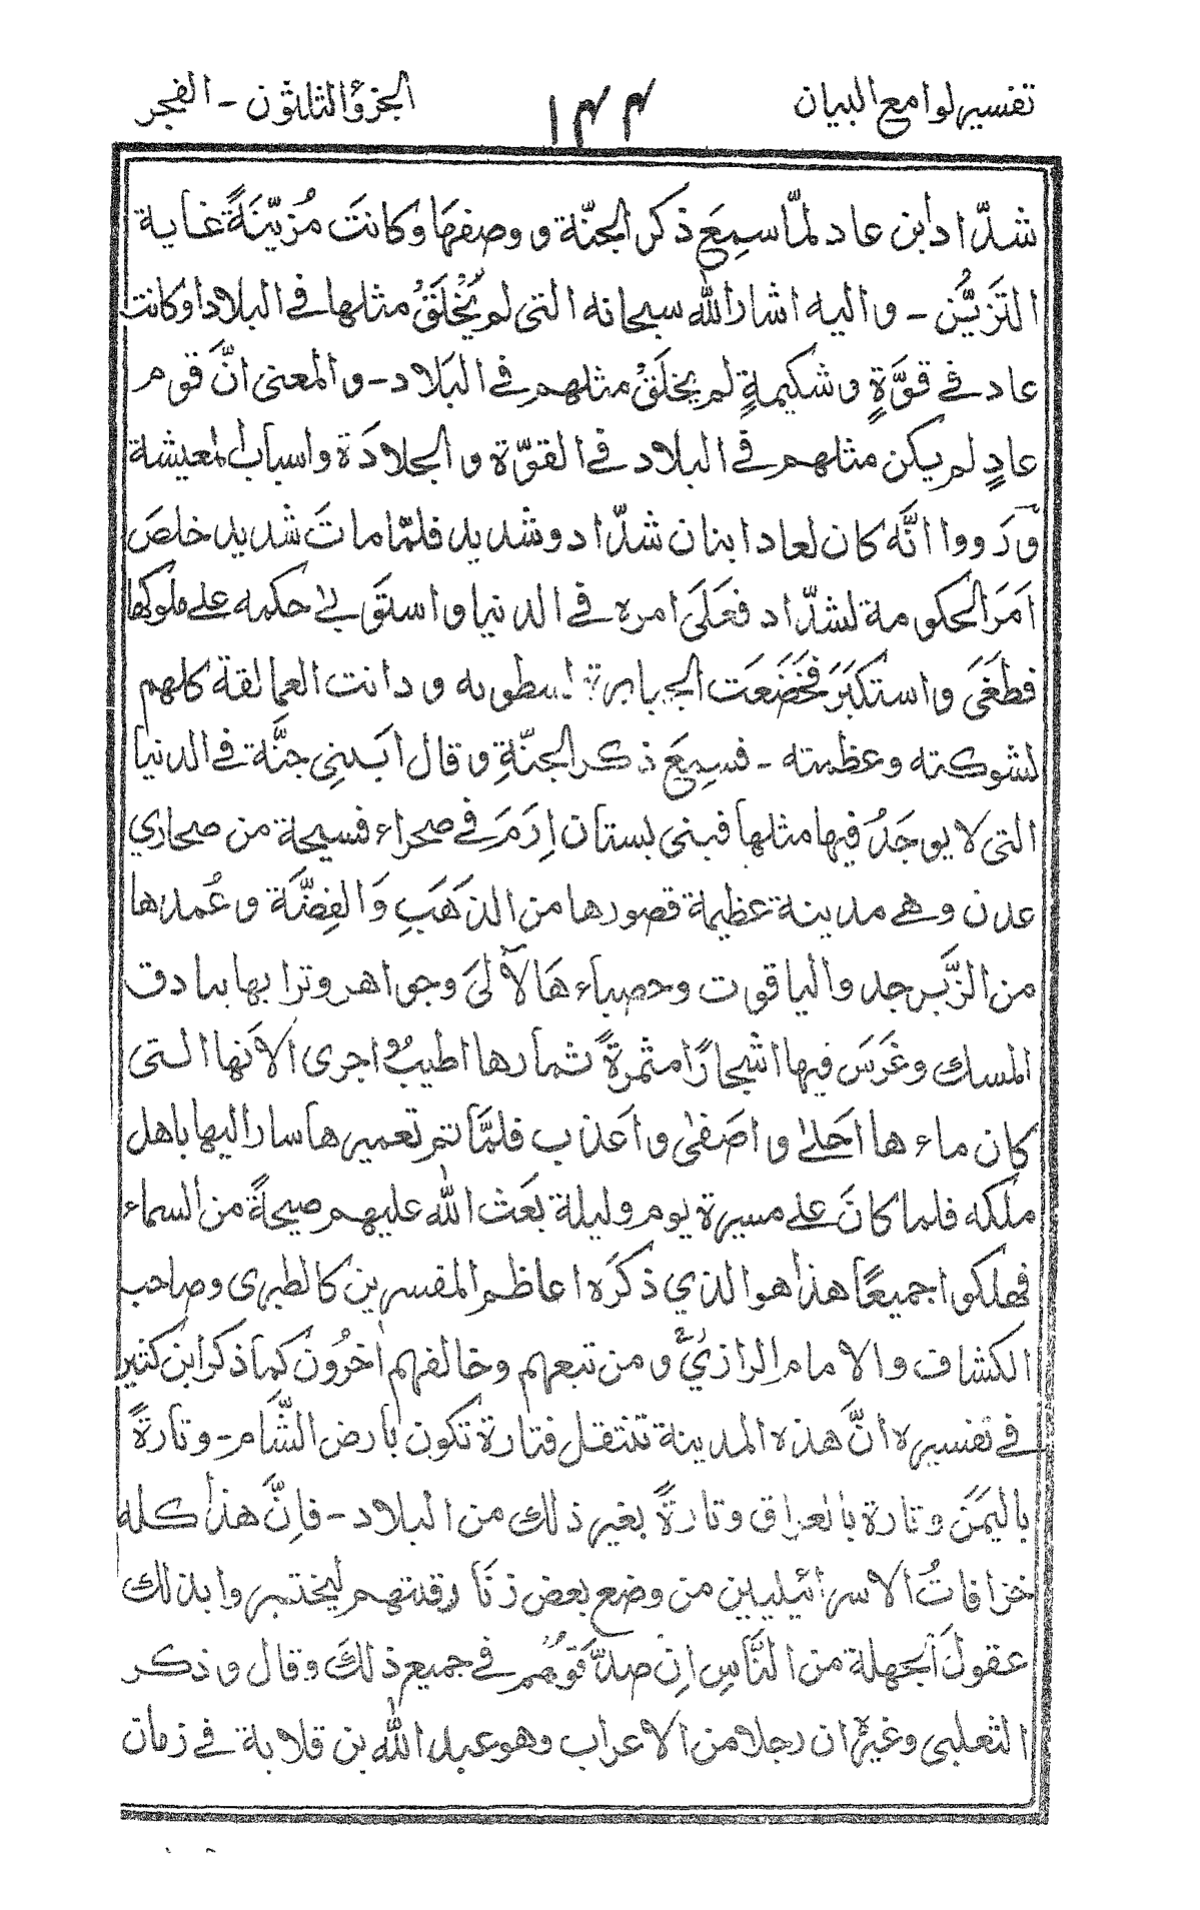 تفسير لوامع البيان
١٣٣
الجزؤ الثلثون - الفجر
شدّاد ابن عاد لمّا سمِعَ ذكر الجنّة و وصفهَا وكانتَ مُزيّنَةً غاية
التَزيُّن - واليه اشار الله سبحانه التى لم يُخْلَقْ مثلها فى البلاد او كانت
عاد فى قوَّةٍ و شكيمةٍ لم يخلَقْ مثلهم فى البَلاد - والمعنى انَّ قوم
عادٍ لم يكن مثلهم فى البلاد فى القوّة و الجلادَة و اسباب المعيشة
ورَووا انَّه كان لعاد ابنان شدّاد و شديد فلمّا ماتَ شديد خلصَ
امَرَ الحكومة لشدّاد فعَلَى امره فى الدنيا و استَولى حكمه على ملوكها
فطَغَى و استكبَرَ فخَضَعَت الجبابرة لسطوته و دانت العمالقة كلهم
لشوكته وعظمته - فسمِعَ ذكر الجنّةِ و قال اَبنِى جنَّة فى الدنيا
التى لا يوجَدُ فيها مثلها فبنى بستان اِرَمَ فى صحراء فسيحة من صحاري
عدن وهى مدينة عظيمة قصورها من الذَهَبِ وَالفِضَّة و عُمدها
من الزَّبرجد والياقوت وحصباءهَا لآلىَ وجواهر وترابها بنادق
المسك وغَرَسَ فيها اشجارًا مثمرةً ثمارها اطيبُ و اجرى الاَنها التى
كان ماءها احَلىٰ و اصَفىٰ و اَعذب فلمَّا تم تعميرها سار اليها باهل
ملكه فلما كانَ على مسيرة يوم وليلة بَعَث الله عليهم صيحةً من السماء
فهلكوا جميعًا هذا هو الذي ذكرَه اعاظم المفسرين كالطبرى وصاحب
الكشاف والامام الرازىؒ و من تبعهم وخالفهم اٰخرُون كمَا ذكر ابن كثير
فى تفسيره انَّ هذه المدينة تنتقل فتارة تكون بارض الشَّام - وتارةً
باليَمَن و تارة بالعراق وتارةً بغير ذلك من البلاد - فاِنَّ هذا كله
خرافاتُ الاسرائيليين من وضع بعض زنَادقتهم ليختبروا بذلك
عقولَ الجهلة من النَّاسِ اِن صدَّقوهُم فى جميع ذلكَ و قال و ذكر
الثعلبى وغيرُه ان رجلا من الاعراب وهو عبد الله بن قلابة فى زمان